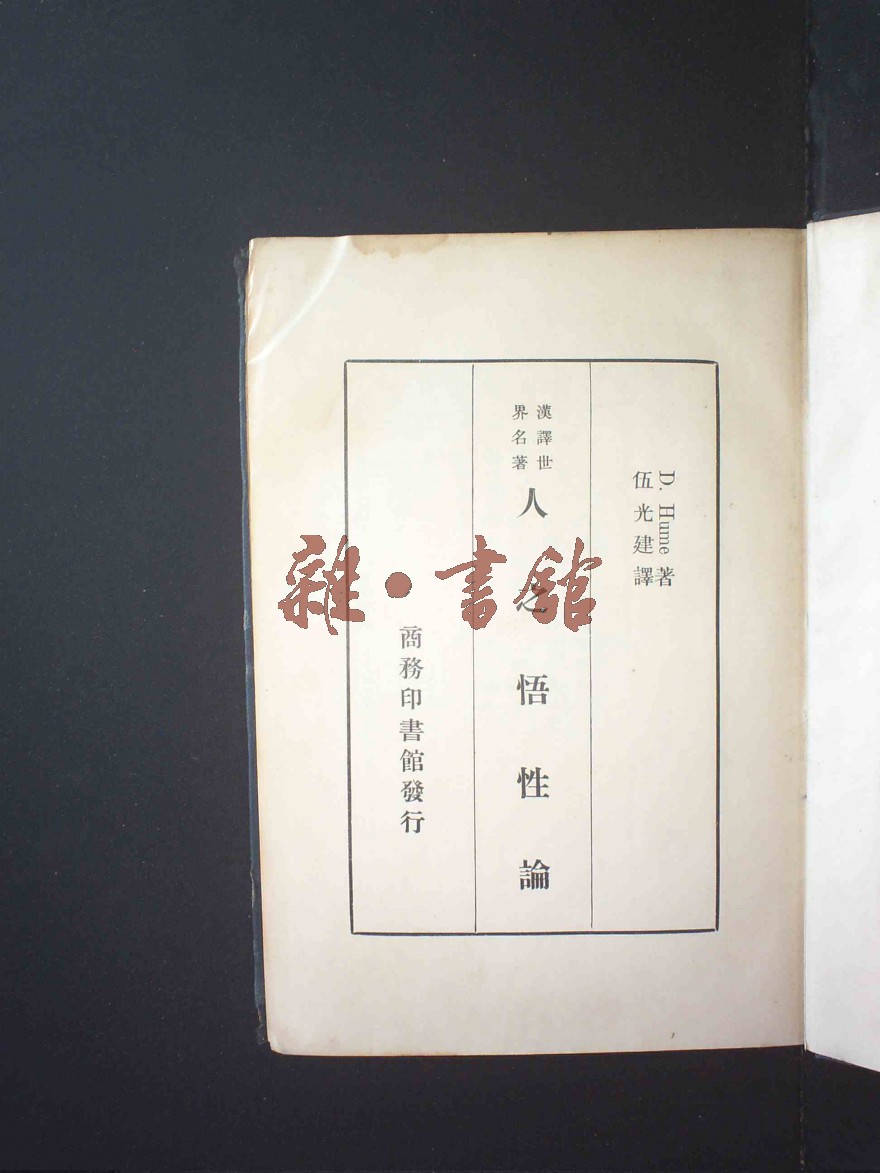 D. Hume著
伍光建譯
漢譯世
界名著
人之悟性論
商務印書館發行
雜·書館